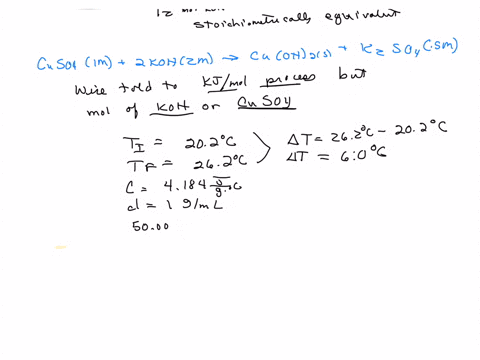 stoichiometrically equivalent
CuSO4 (1M) + 2KOH(2M) → Cu(OH)2(s) + K2 SO4 (.5M)
We're told to KJ/mol process but
mol of KOH or CuSO4
TI = 20.2°C
TF = 26.2°C
ΔT = 26.2°C - 20.2°C
ΔT = 6.0°C
C = 4.184 J/g·°C
d = 1 g/mL
50.00